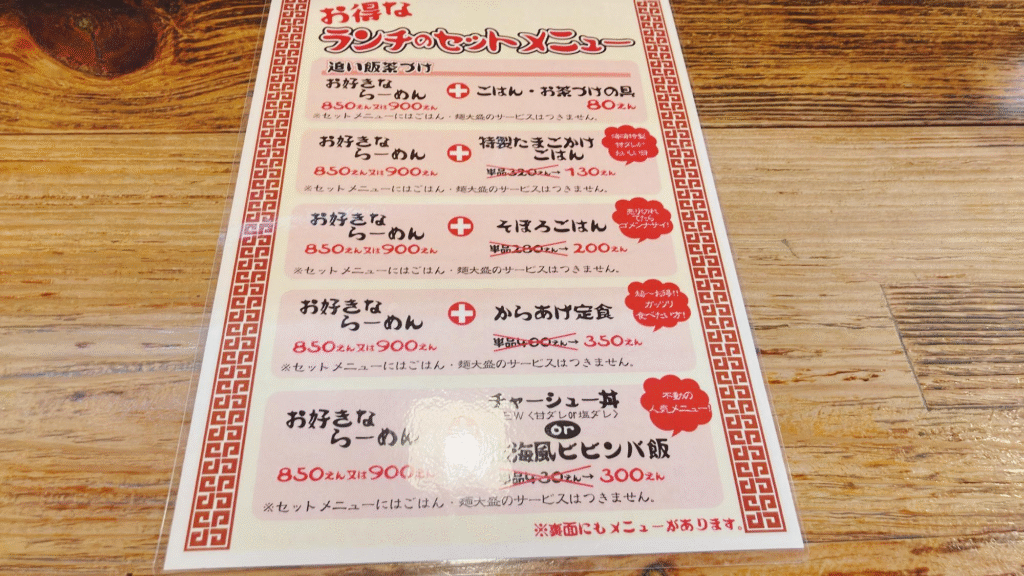 お得な
ランチのセットメニュー
追い飯茶づけ
お好きな
らーめん
850えん又は900えん
ごはん・お茶づけの具
80えん
※セットメニューにはごはん・麺大盛のサービスはつきません。
お好きな
らーめん
850えん又は900えん
特製たまごかけ
ごはん
単品320えん→130えん
※セットメニューにはごはん・麺大盛のサービスはつきません。
お好きな
らーめん
850えん又は900えん
そぼろごはん
単品280えん→200えん
売り切れ
てたら
ゴメンナサイ!
※セットメニューにはごはん・麺大盛のサービスはつきません。
お好きな
らーめん
850えん又は900えん
からあげ定食
単品400えん→350えん
超〜お得!!
ガッツリ
食べたい方!
※セットメニューにはごはん・麺大盛のサービスはつきません。
お好きな
らーめん
850えん又は900
チャーシュー丼
〈甘ダレor塩ダレ〉
or
海風ビビンバ飯
430えん→300えん
不動の
人気メニュー!
※セットメニューにはごはん・麺大盛のサービスはつきません。
※裏面にもメニューがあります。